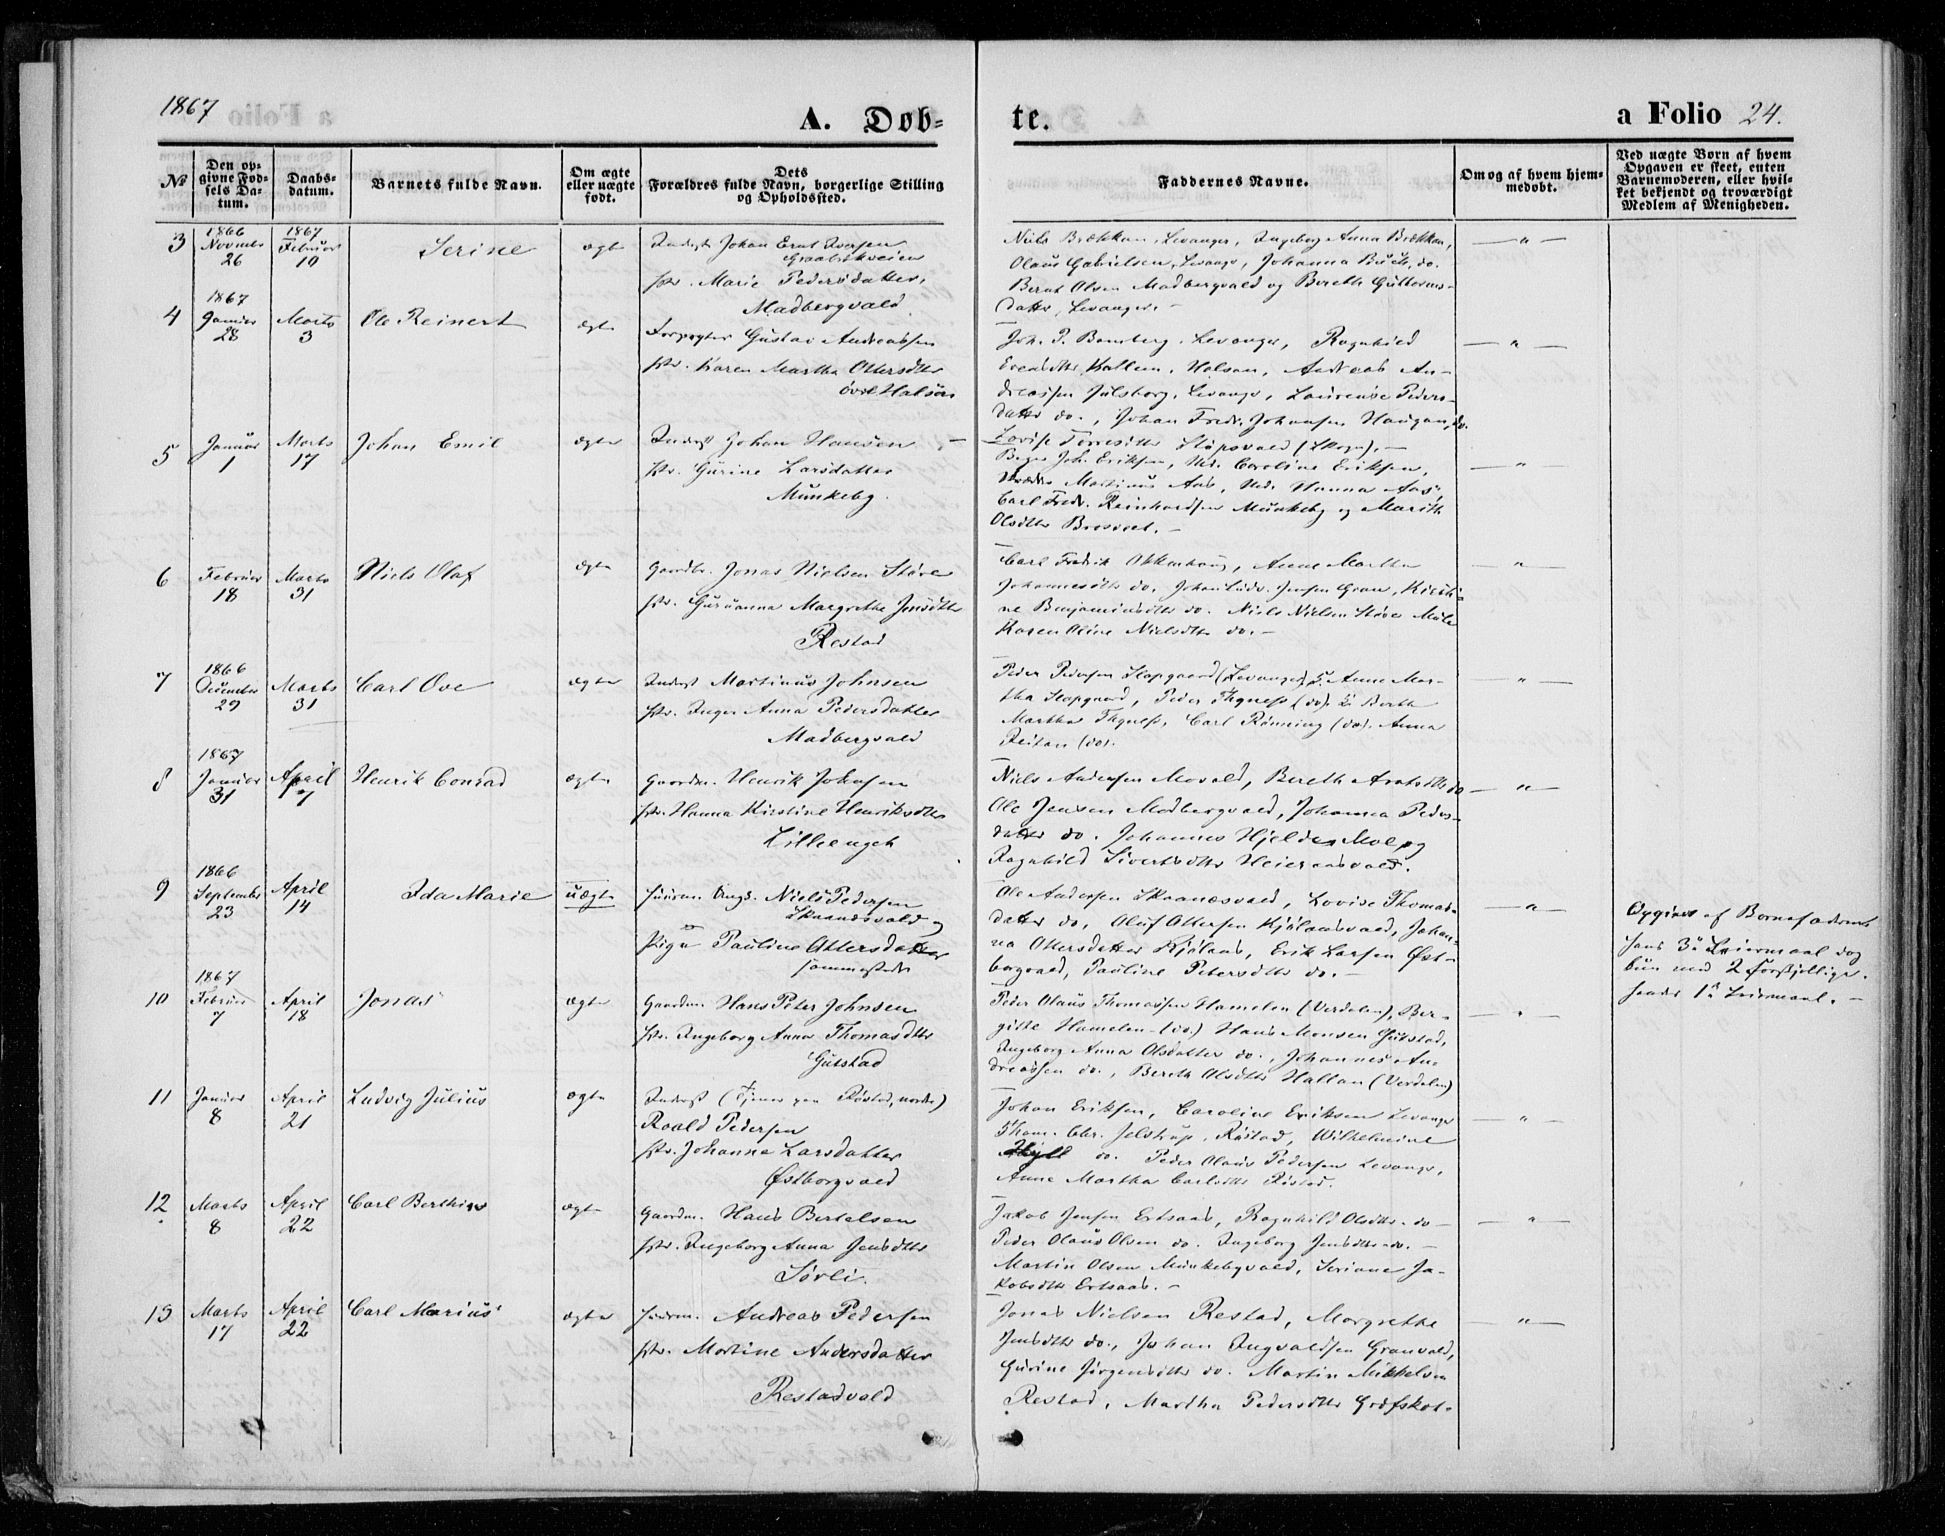 1867 A. Døb- te. a Folio 24.
No
Den op- givne Fod- sels Da- tum.
Daabs- datum.
Barnets fulde Navn.
Om ægte eller uægte født.
Dets Forældres fulde Navn, borgerlige Stilling og Opholdssted.
Faddernes Navne.
Om og af hvem hjem- medøbt.
Ved uægte Børn af hvem Opgaven er skeet, enten Barnemoderen, eller hvil- ket bekjendt og troværdigt Medlem af Menigheden.
3 1866 Novembr 26 1867 Februar 19 Serine ægte
Inderst Johan Ernt Iversen
Marie Pedersdatter,
Madbergvald
Niels Brækkan, Levanger, Ingeborg Anna Brækkan,
Olaus Gabrielsen, Levanger, Johanna Buch, do.
Bernt Olsen Madbergvald og Bereth Guttorms-
datter, Levanger. –
4 1867 Januar 28 Marts 3 Ole Reinert ægte
Forpagter Gustav Andreassen
Karen Martha Ottersdtr
øvre Halsan
Joh. P. Levanger, Ragnhild
Hallem, Halsan, Andreas An-
dreassen Julsborg, Levanger, Laurense Peders-
datter do., Johan Fredr. Johansen Haugan, do.
Lovise Torresdtr (Skogn). –
5 Januar 1 Marts 17 Johan Emil ægte
Inderst Johan Hansen –
Gurine Larsdatter
Munkeby.
Joh. Eriksen, Caroline Eriksen,
Martinus Aas, Hanna Aas,
Carl Fredr. Reinhardsen Munkeby og Marith
Olsdtr –
6 Februar 18 Marts 31 Niels Olaf ægte
Gaardbr. Jonas Nielsen Støre
Guruanna Margrethe Jonsdtr
Restad
Carl Fredrik Okkenhaug, Anne Martha
Johannesdtr do. Johan Ludv. Jensen Gran, Kirsti-
ne Benjaminsdtr do. Niels Nielsen Støre Mule
Karen Oline Nielsdtr do. –
7 1866 December 29 Marts 31 Carl Ove ægte
Inderst Martinus Johnsen
Inger Anna Pedersdatter
Madbergvald
Peder Pedersen Stopgaard (Levanger), Anne Mar-
tha Stopgaard, Peder Thynæss (do), Bereth
Martha Thynæss, Carl Rønning (do). Anna
Reitan (do).
8 1867 Januar 31 April 7 Henrik Conrad ægte
Gaardm. Henrik Johnsen
Hanna Kirstine Henriksdtr
Lilleenget
Niels Andersen Movald, Bereth do
Ole Jensen Madbergvald, Johanna Peders-
datter do. Johannes Hjelde Mo og
Ragnhild Sivertsdtr
9 1866 September 23 April 14 Ida Marie uægte
Niels Pedersen
Skaanesvald og
Pige Pauline Ottersdatter
sammesteds
Ole Andersen Skaanesvald, Lovise Thomas-
datter do, Oluf Ottersen Kjølaasvald, Johan-
na Ottersdatter Kjølaas, Erik Larsen Øst-
borgvald, Pauline Petersdtr do. –
Opgivet af Barnefaderen
hans 3die Leiermaal dog
kun med 2 forskjellige.
hendes 1ste Leiermaal. –
10 1867 Februar 7 April 18 Jonas ægte
Gaardm. Hans Peter Johnsen
Ingeborg Anna Thomasdtr
Gutstad
Peder Olaus Thomassen Hamelen (Verdalen), Ber-
gitte Hamelen (do.) Hans Monsen Gutstad,
Ingeborg Anna Olsdatter do., Johannes An-
dreassen do., Bereth Olsdtr Hallan (Verdalen)
11 Januar 8 April 21 Ludvig Julius ægte
Inderst (Tjener paa Røstad, nordre)
Roald Pedersen
Johanna Larsdatter
Østborgvald
Johan Eriksen, Caroline Eriksen Levanger
Thom. Chr. Jelstrup, Røstad, Wilhelmine
do. Peder Olaus Pedersen Levanger,
Anne Martha Carlsdtr Røstad.
12 Marts 8 April 22 Carl Berthin ægte
Gaardm. Hans Bertelsen
Ingeborg Anna Jensdtr
Sørli.
Jakob Jensen Ertsaas, Ragnhild Olsdtr. do –
Peder Olaus Olsen do. Ingeborg Jensdtr do. –
Martin Olsen Munkebyvald, Seriane Ja-
kobsdtr Ertsaas. –
13 Marts 17 April 22 Carl Marius ægte
Andreas Pedersen
Martine Andersdatter
Restadvald
Jonas Nielsen Restad, Margrethe
Jensdtr do., Johan Ingvaldsen Granvald,
Gurine Jørgensdtr do. Martin Mikkelsen
Restad, Martha Pedersdtr